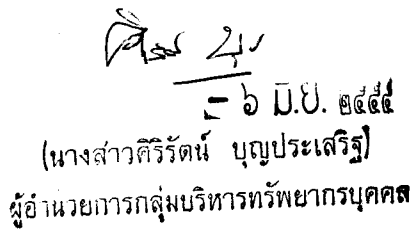 - ๖ มิ.ย. ๒๕๕๕
(นางสาวศิริรัตน์ บุญประเสริฐ)
ผู้อำนวยการกลุ่มบริหารทรัพยากรบุคคล